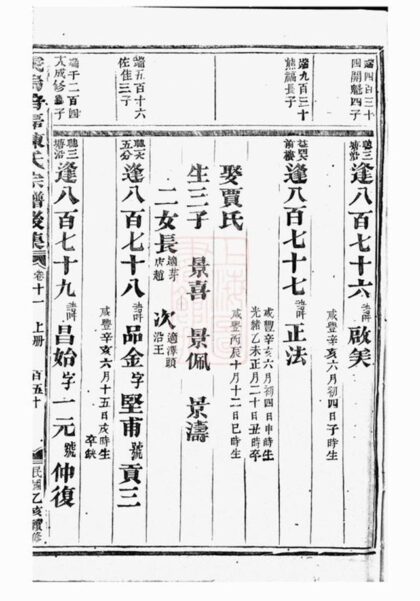 端四百三十
四開魁四子
聽三
逢八百七十六
啟美
咸豐辛亥六月初四日子時生
端九百三十
熊鵬長子
逢八百七十七
正法
咸豐辛亥六月初四日申時生
光緒乙未正月二十日丑時卒
娶賈氏
咸豐丙辰十月十二日巳時生
生三子 景喜 景佩 景濤
二女長
次
端五百十六
佐佳三子
五分
逢八百七十八
品金字堅甫號貢三
咸豐辛亥六月十五日戌時生
卒缺
端千二百四
大成修養子
聽三
逢八百七十九
昌始字一元號仲復
陳氏宗譜後集 卷十一 上册 百五十 民國乙亥續修